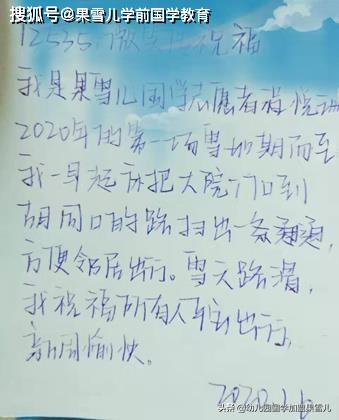 搜狐号@果雪儿学前国学教育
12535.微 祝福
我是果雪儿国学志愿者程悦
2020年的第一场雪如期而至
我一早起 把大院门口到
胡同口的路扫出一条通道,
方便邻居出行。雪天路滑,
我祝福所有人 出行,
新周愉快。
2020.1.6
头条@幼儿园国学加盟果雪儿